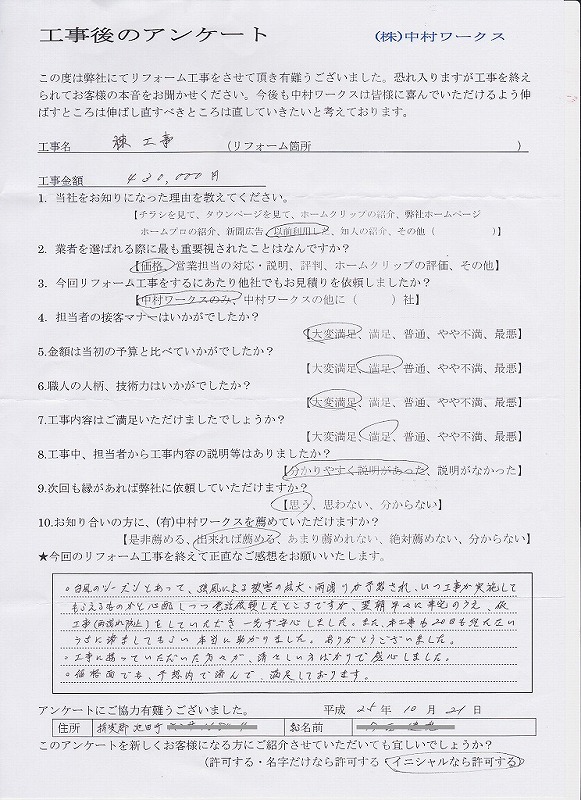 工事後のアンケート (株)中村ワークス
この度は弊社にてリフォーム工事をさせて頂き有難うございました。恐れ入りますが工事を終え
られてお客様の本音をお聞かせください。今後も中村ワークスは皆様に喜んでいただけるよう伸
ばすところは伸ばし直すべきところは直していきたいと考えております。
工事名 棟工事 (リフォーム箇所 )
工事金額 430,000円
1. 当社をお知りになった理由を教えてください。
【チラシを見て、タウンページを見て、ホームクリップの紹介、弊社ホームページ
ホームプロの紹介、新聞広告、以前利用した、知人の紹介、その他( )】
2. 業者を選ばれる際に最も重要視されたことはなんですか?
【価格、営業担当の対応・説明、評判、ホームクリップの評価、その他】
3. 今回リフォーム工事をするにあたり他社でもお見積りを依頼しましたか?
【中村ワークスのみ、中村ワークスの他に( )社】
4. 担当者の接客マナーはいかがでしたか?
【大変満足、満足、普通、やや不満、最悪】
5.金額は当初の予算と比べていかがでしたか?
【大変満足、満足、普通、やや不満、最悪】
6.職人の人柄、技術力はいかがでしたか?
【大変満足、満足、普通、やや不満、最悪】
7.工事内容はご満足いただけましたでしょうか?
【大変満足、満足、普通、やや不満、最悪】
8.工事中、担当者から工事内容の説明等はありましたか?
【分かりやすく説明があった、説明がなかった】
9.次回も縁があれば弊社に依頼していただけますか?
【思う、思わない、分からない】
10.お知り合いの方に、(有)中村ワークスを薦めていただけますか?
【是非薦める、出来れば薦める、あまり薦めれない、絶対薦めない、分からない】
★今回のリフォーム工事を終えて正直なご感想をお願いいたします。
○台風のシーズンとあって、強風による被害の拡大・雨漏りが予想され、いつ工事が実施して
もらえるものかと心配しつつ電話依頼したところですが、早速の
工事(雨漏れ防止)をしていただき一先ず安心しました。また、本工事も20日も経たない
うちに済ましてもらい本当に助かりました。ありがとうございました。
○工事に携っていただいた方々が、清々しい方ばかりで感心しました。
○価格面でも、予想内で済んで、満足しております。
アンケートにご協力有難うございました。 平成 25年 10月 21日
住所 揖斐郡池田町 お名前
このアンケートを新しくお客様になる方にご紹介させていただいても宜しいでしょうか?
(許可する・名字だけなら許可する・イニシャルなら許可する)